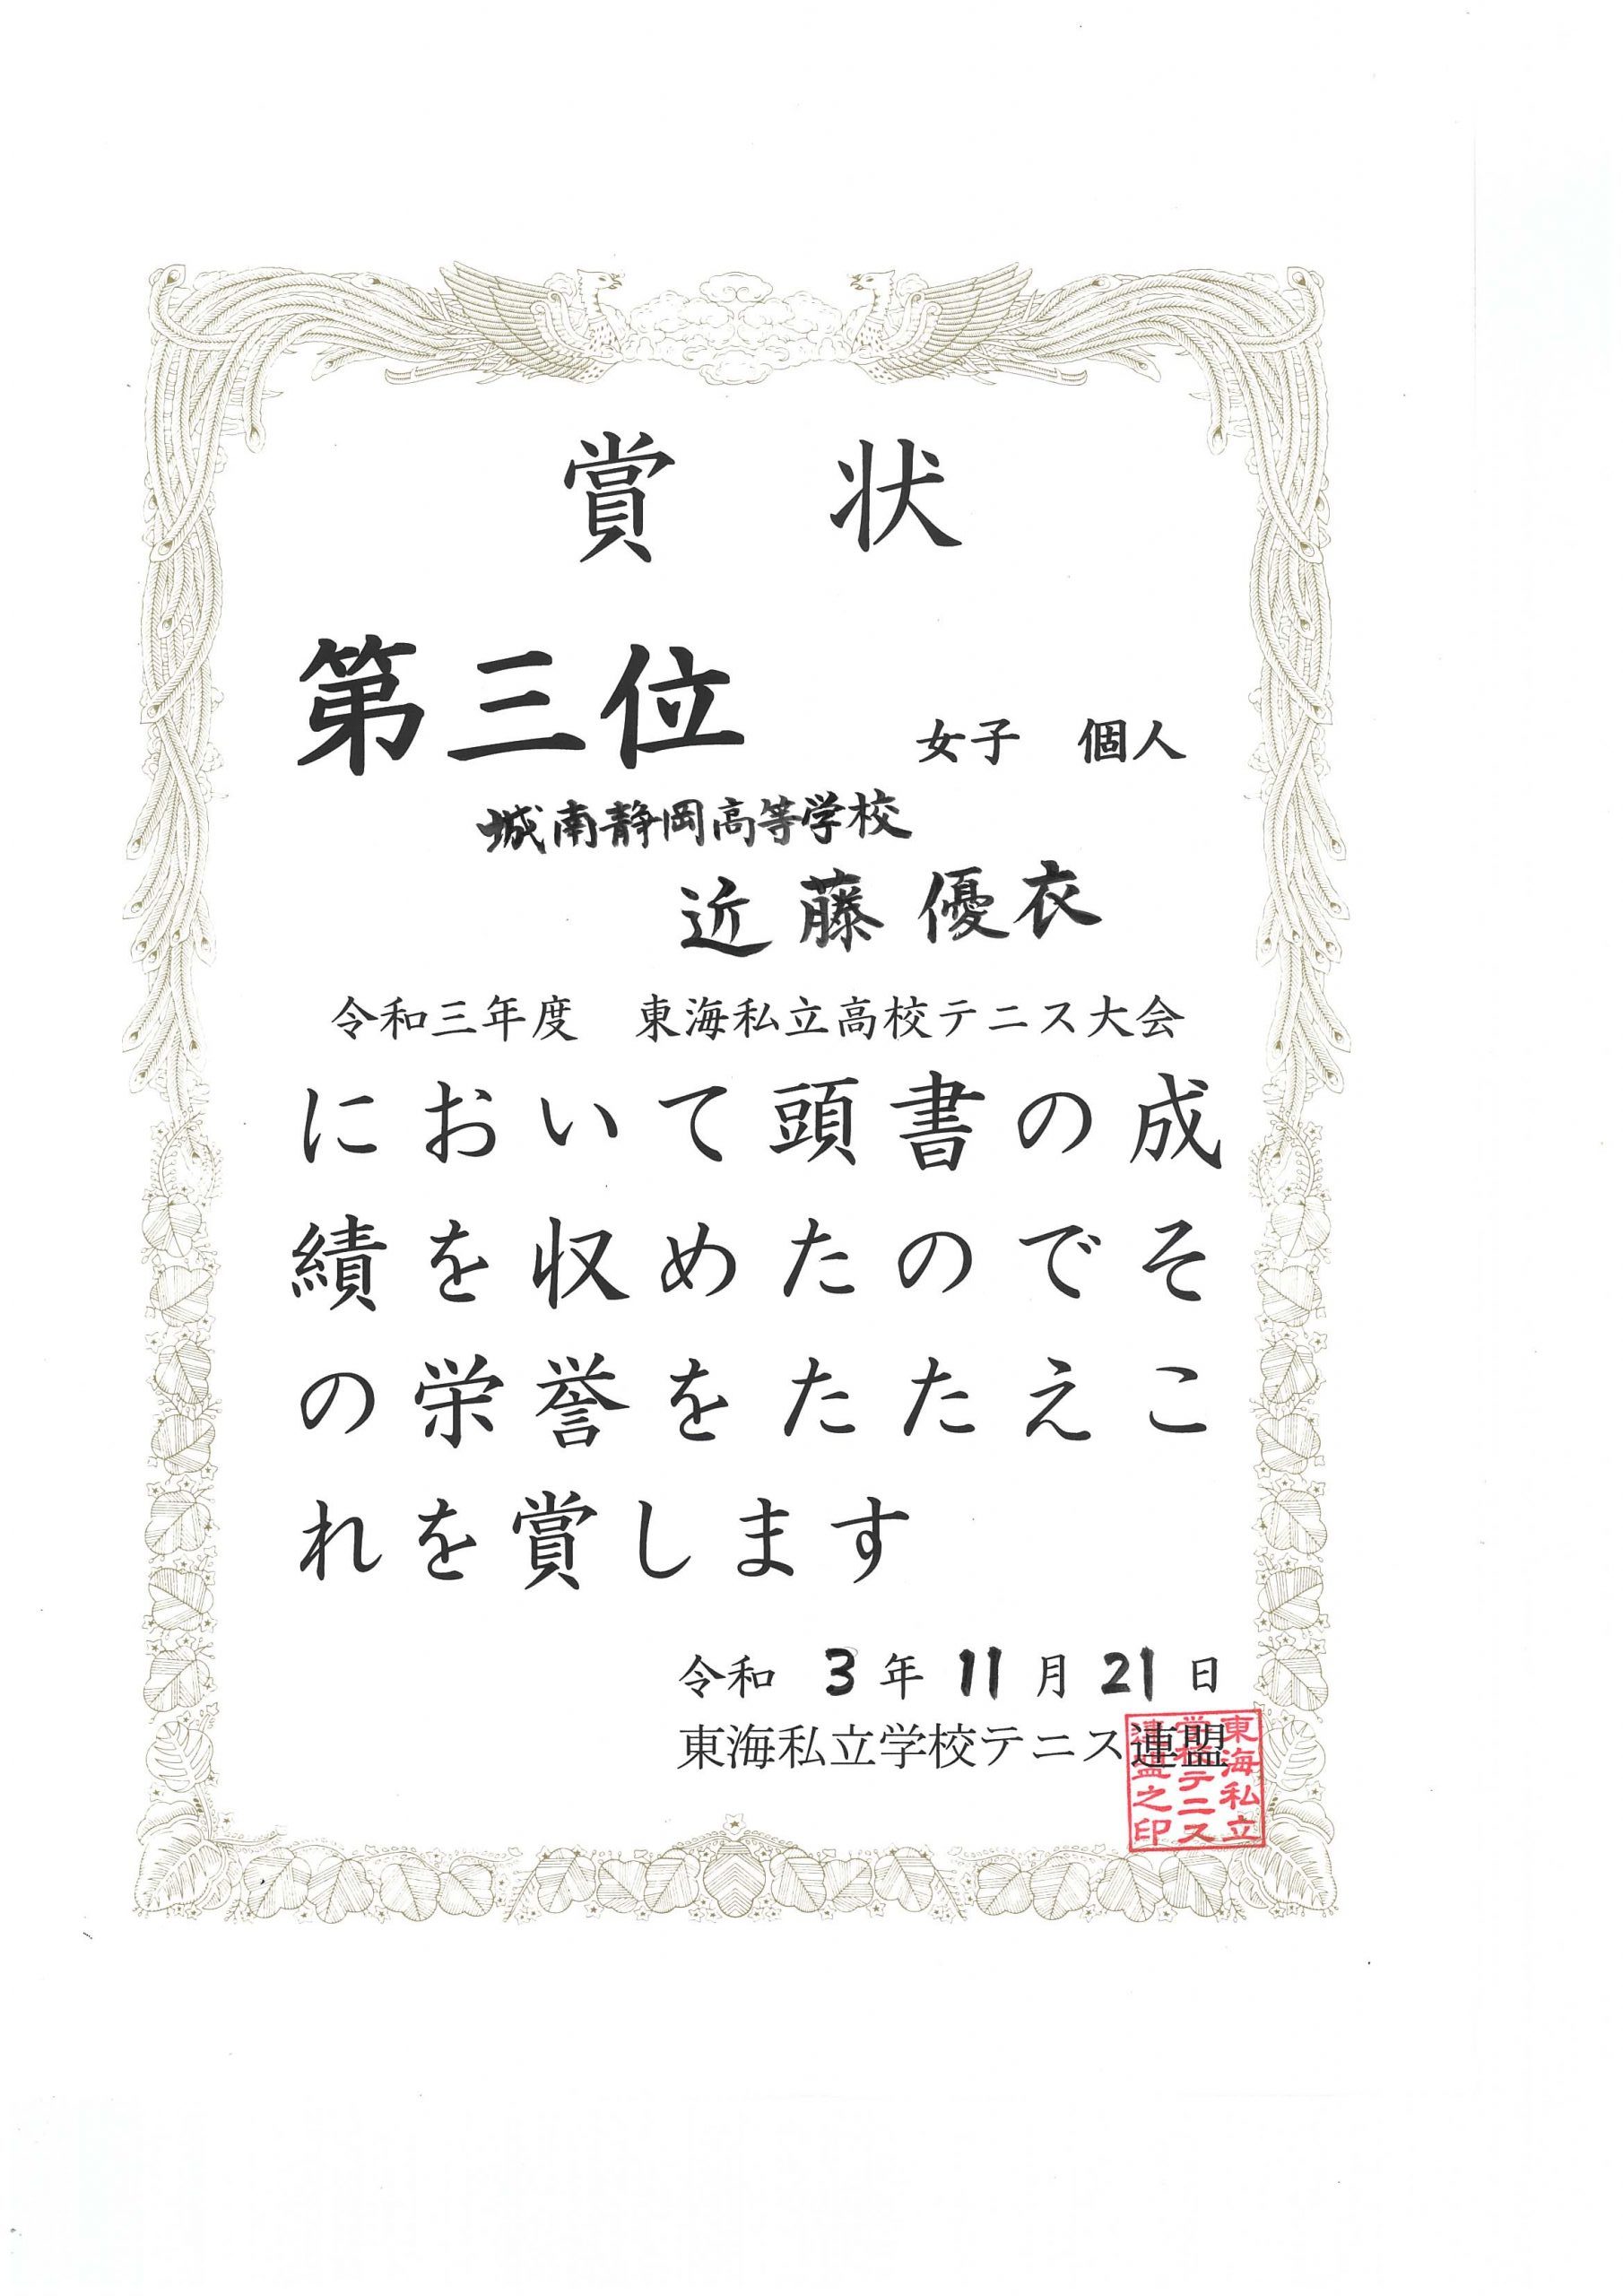 賞状
第三位 女子 個人
城南静岡高等学校
近藤優衣
令和三年度 東海私立高校テニス大会
において頭書の成
績を収めたのでそ
の栄誉をたたえこ
れを賞します
令和 3 年 11 月 21 日
東海私立学校テニス連盟
東海私立
学校テニス
連盟之印